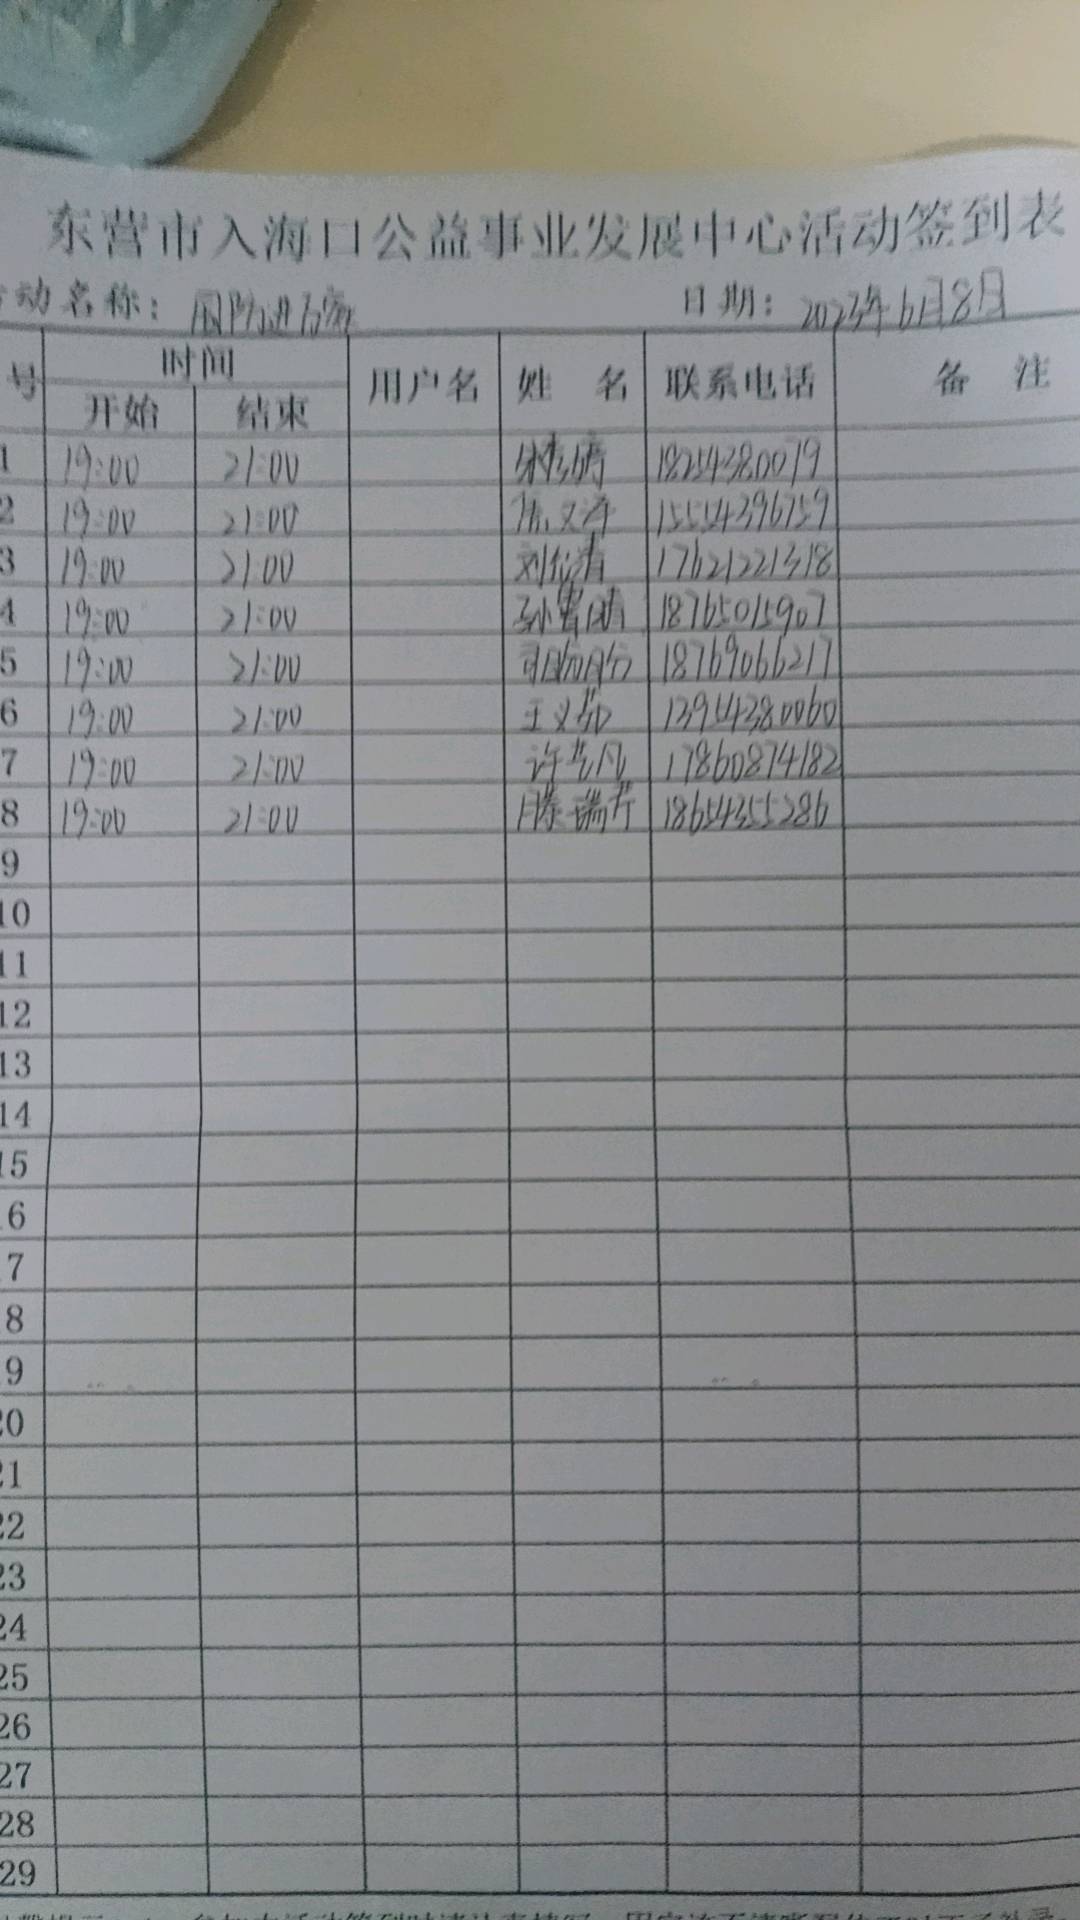 东营市入海口公益事业发展中心活动签到表
动名称: 国防进万家 日期: 2023年6月8日
号 时间 用户名 姓 名 联系电话 备 注
开始 结束
1 19:00 21:00 18254380079
2 19:00 21:00 15554396759
3 19:00 21:00 17621221318
4 19:00 21:00 18765015907
5 19:00 21:00 18769066217
6 19:00 21:00 王义茹 13954380060
7 19:00 21:00 许艺凡 17860874182
8 19:00 21:00 滕瑞芹 18654355286
9
10
11
12
13
14
15
16
17
18
19
20
21
22
23
24
25
26
27
28
29